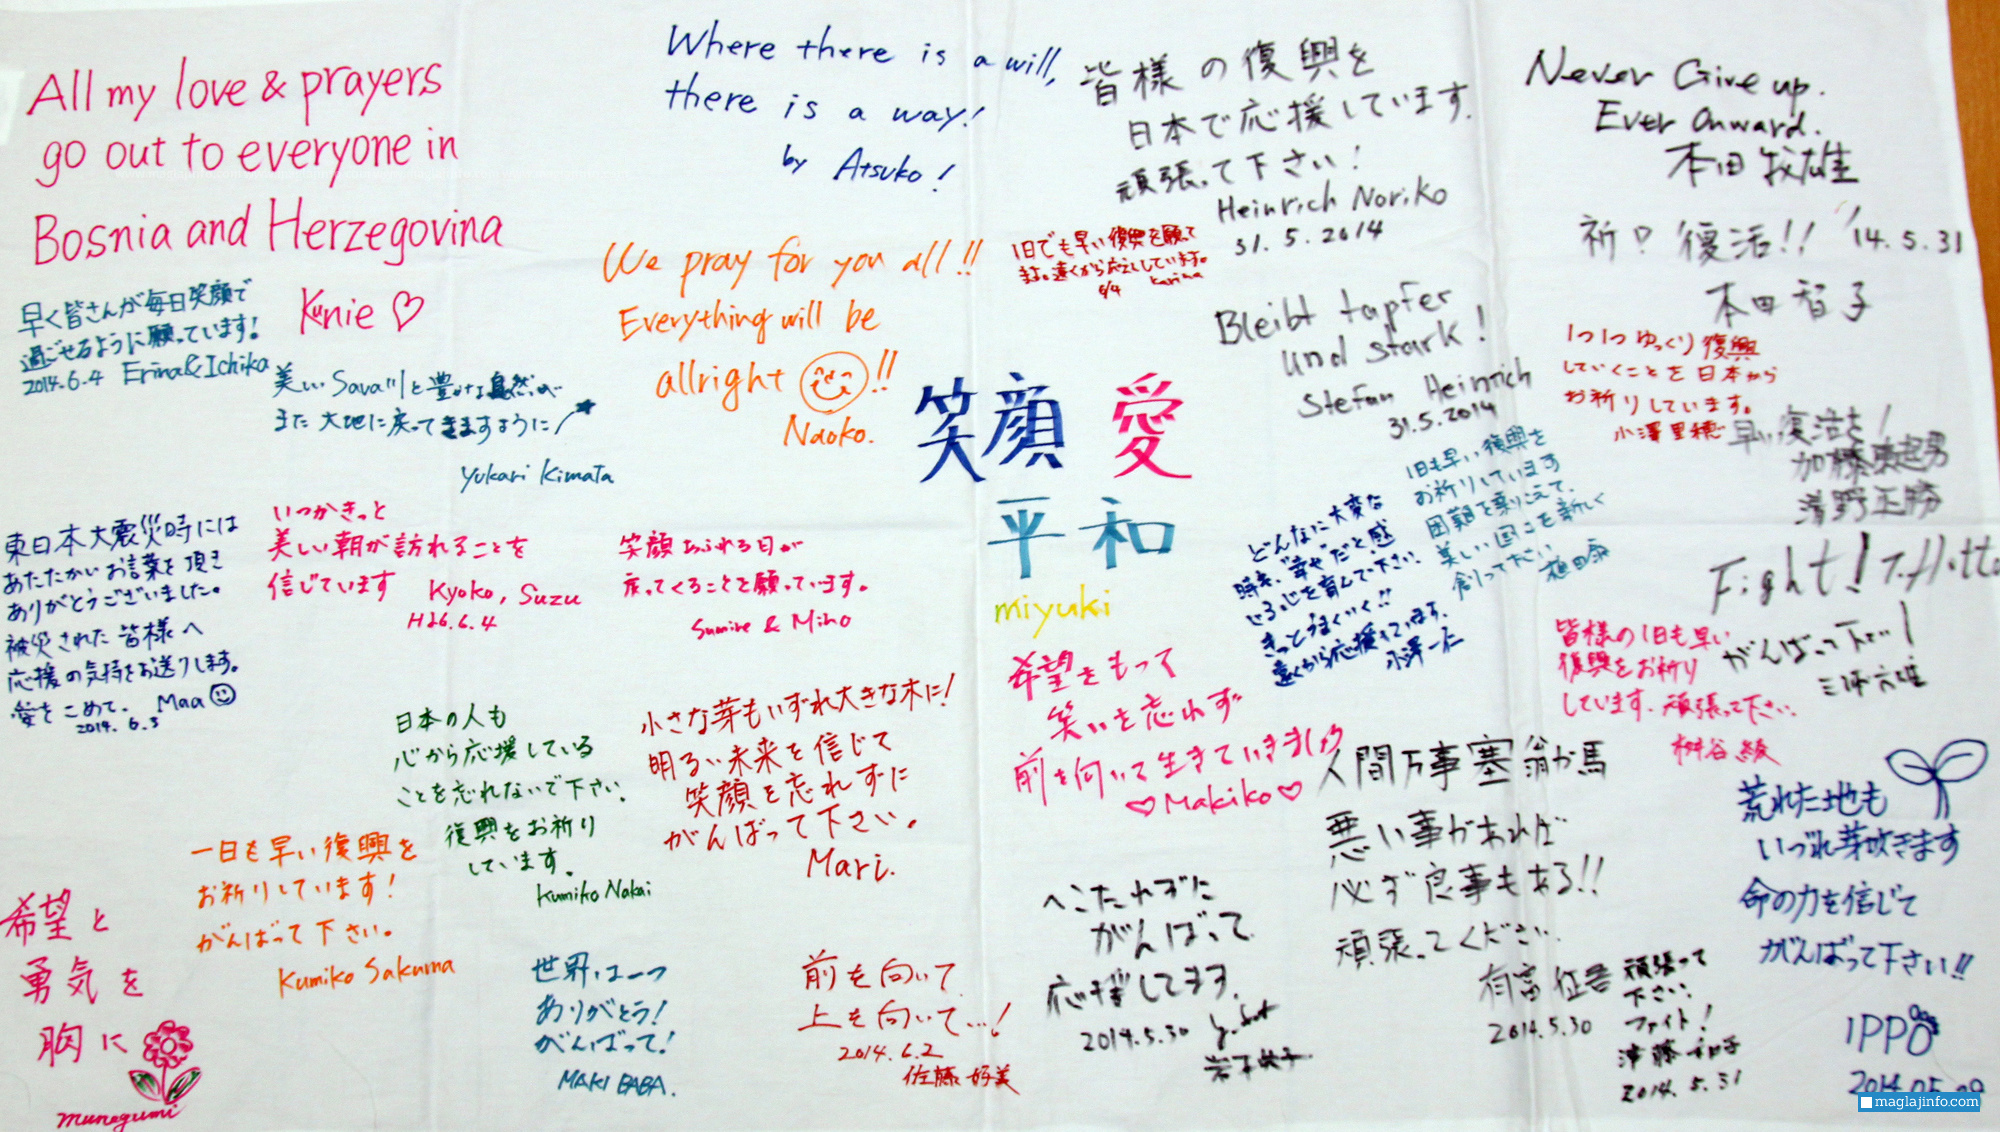 All my love & prayers
go out to everyone in
Bosnia and Herzegovina
Kunie ♡
早く皆さんが毎日笑顔で
過ごせるように願っています!
2014.6.4 Erina & Ichika
美しい Sava川と豊かな自然が
また 大地に戻ってきますように
Yukari Kimata
Where there is a will,
there is a way!
by Atsuko!
We pray for you all!!
Everything will be
allright !!
Naoko.
皆様の復興を
日本で応援しています.
頑張って下さい!
Heinrich Noriko
31.5.2014
1日でも早い復興を願って
ます。遠くから応えんしています。
6/4 Karina
Bleibt tapfer
und stark!
Stefan Heinrich
31.5.2014
Never Give up.
Ever Onward.
本田
祈 復活!! '14.5.31
本田智子
1つ1つゆっくり復興
していくことを日本から
お祈りしています。
小澤里穂
早い復活を!
加藤
清野正勝
笑顔 愛
平和
miyuki
東日本大震災時には
あたたかいお言葉を頂き
ありがとうございました。
被災された皆様へ
応援の気持をお送りします。
愛をこめて. Maa
2014.6.3
いつかきっと
美しい朝が訪れることを
信じています Kyoko, Suzu
H26.6.4
笑顔あふれる日が
戻ってくることを願っています。
Sumire & Miho
どんなに大変な
時も、"幸せ"だと感
じる心を育んで下さい.
きっとうまくいく!!
遠くから応援しています.
小澤一仁
1日も早い復興を
お祈りしています
困難を乗りこえて、
美しい国を新しく
創って下さい
Fight! T.Hotta
がんばって下さい!
皆様の1日も早い
復興をお祈り
しています. 頑張って下さい.
桝谷 綾
希望をもって
笑いを忘れず
前を向いて生きていきましょう
♡Makiko♡
日本の人も
心から応援している
ことを忘れないで下さい.
復興をお祈り
しています。
Kumiko Nakai
小さな芽もいずれ大きな木に!
明るい未来を信じて
笑顔を忘れずに
がんばって下さい。
Mari.
人間万事塞翁が馬
悪い事があれば
必ず良事もある!!
頑張ってください.
有富
2014.5.30
荒れた地も
いづれ芽吹きます
命の力を信じて
がんばって下さい!!
IPPO
一日も早い復興を
お祈りしています!
がんばって下さい。
Kumiko Sakuma
希望と
勇気を
胸に
munegumi
世界は一つ
ありがとう!
がんばって!
MAKI BABA.
前を向いて
上を向いて...!
2014.6.2
佐藤 好美
へこたれずに
がんばって
応援してます.
2014.5.30
頑張って
下さい.
ファイト!
2014.5.31
maglajinfo.com